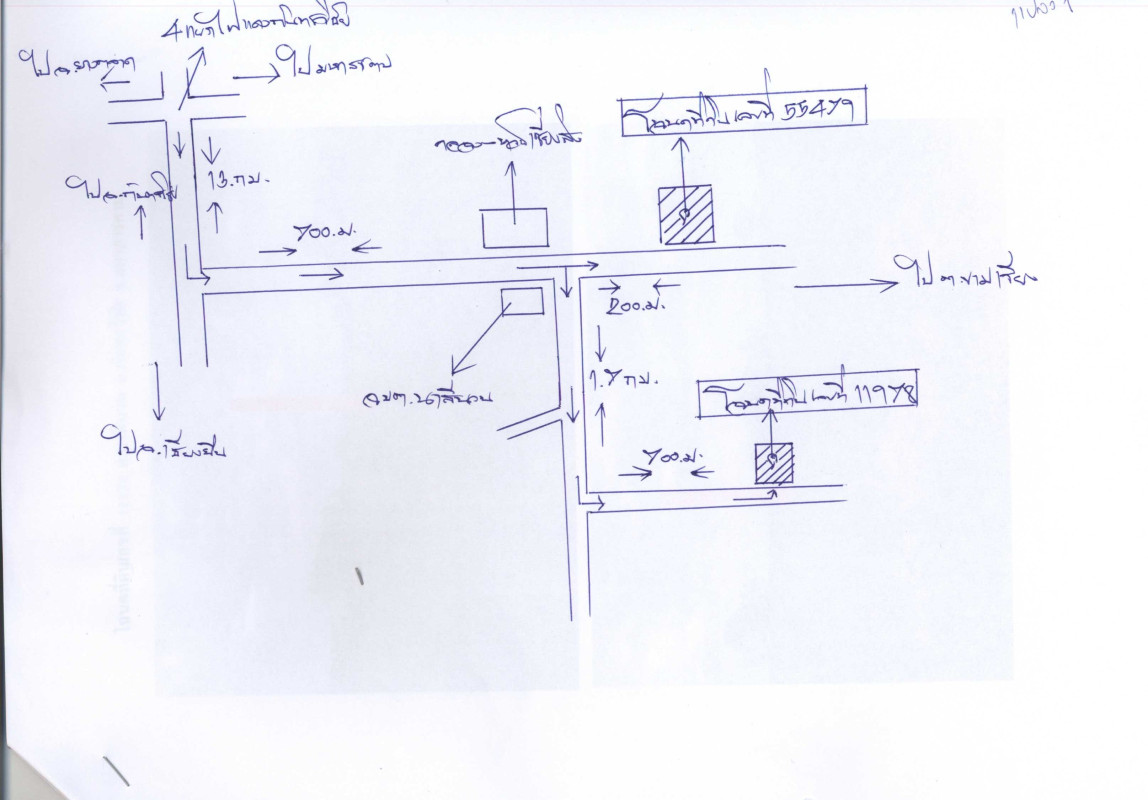 4 แยกไฟแดงกันทรวิชัย
ไป อ.ยางตลาด
ไปมหาสารคาม
โฉนดที่ดินเลขที่ 55479
ไป อ.กันทรวิชัย
13 กม.
700 ม.
ไป ต.ขามเรียง
200 ม.
1.7 กม.
อบต.นาสีนวน
โฉนดที่ดินเลขที่ 11978
ไป อ.เชียงยืน
700 ม.